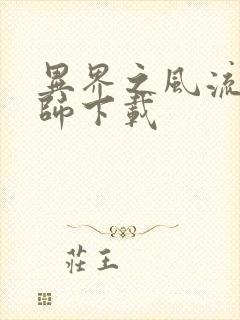 異界之風流
師下載
莊王